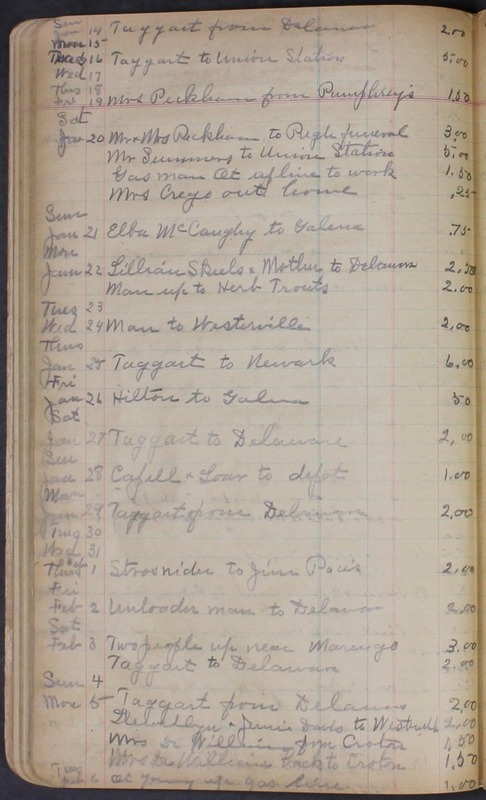 Sun
Jan 14 Taggart from Delaware 2.00
Mon 15
Tues 16 Taggart to Union Station 5.00
Wed 17
Thus 18
Fri 19 Mrs Peckham from Pumphrey's 1.50
Sat
Jan 20 Mr & Mrs Peckham to Pugh funeral 3.00
Mr Summers to Union Station 5.00
Gas man at up line to work 1.50
Mrs Crego out home .25
Sun
Jan 21 Elba McCaughy to Galena .75
Mon
Jan 22 Lillian Skeels & Mother to Delaware 2.50
Man up to Herb Trouts 2.00
Tues 23
Wed 24 Man to Westerville 2.00
Thus
Jan 25 Taggart to Newark 6.00
Fri
Jan 26 Hilton to Galena 50
Sat
Jan 27 Taggart to Delaware 2.00
Sun
Jan 28 Cafell & Loar to depot 1.00
Mon
Jan 29 Taggart from Delaware 2.00
Tues 30
Wed 31
Thus 1 Strosnider to Jim 2.00
Fri
Feb 2 Unloader man to Delaware 2.00
Sat
Feb 3 Two people up near Marengo 3.00
Taggart to Delaware 2.00
Sun 4
Mon 5 Taggart from Delaware 2.00
Llewellyn & Davis to 2.00
Mrs Dr Williams from Croton 1.50
Mrs Dr Williams back to Croton 1.50
Tues
Feb 6 up gas line 1.00